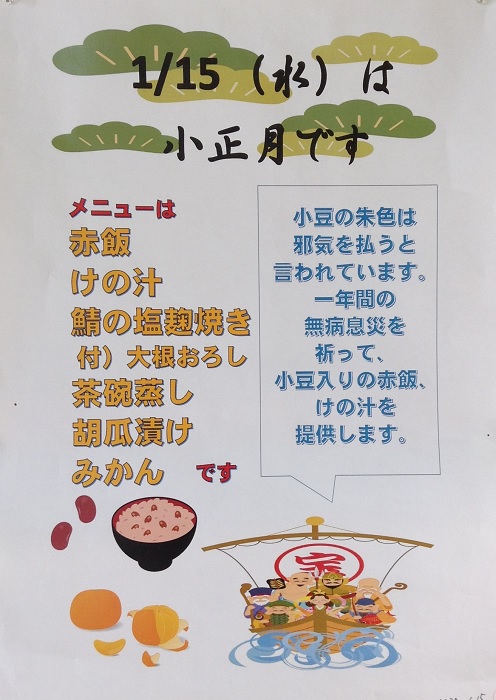 1/15（水）は
小正月です
メニューは
赤飯
けの汁
鯖の塩麹焼き
付）大根おろし
茶碗蒸し
胡瓜漬け
みかん です
小豆の朱色は
邪気を払うと
言われています。
一年間の
無病息災を
祈って、
小豆入りの赤飯、
けの汁を
提供します。
宝